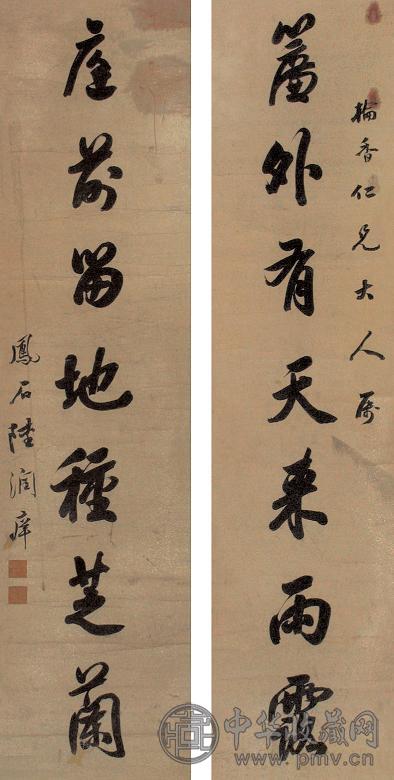 掄香仁兄大人屬
簾外有天來雨露
庭前留地種芝蘭
鳳石陸潤庠
中华收藏网
www.pmv.cn